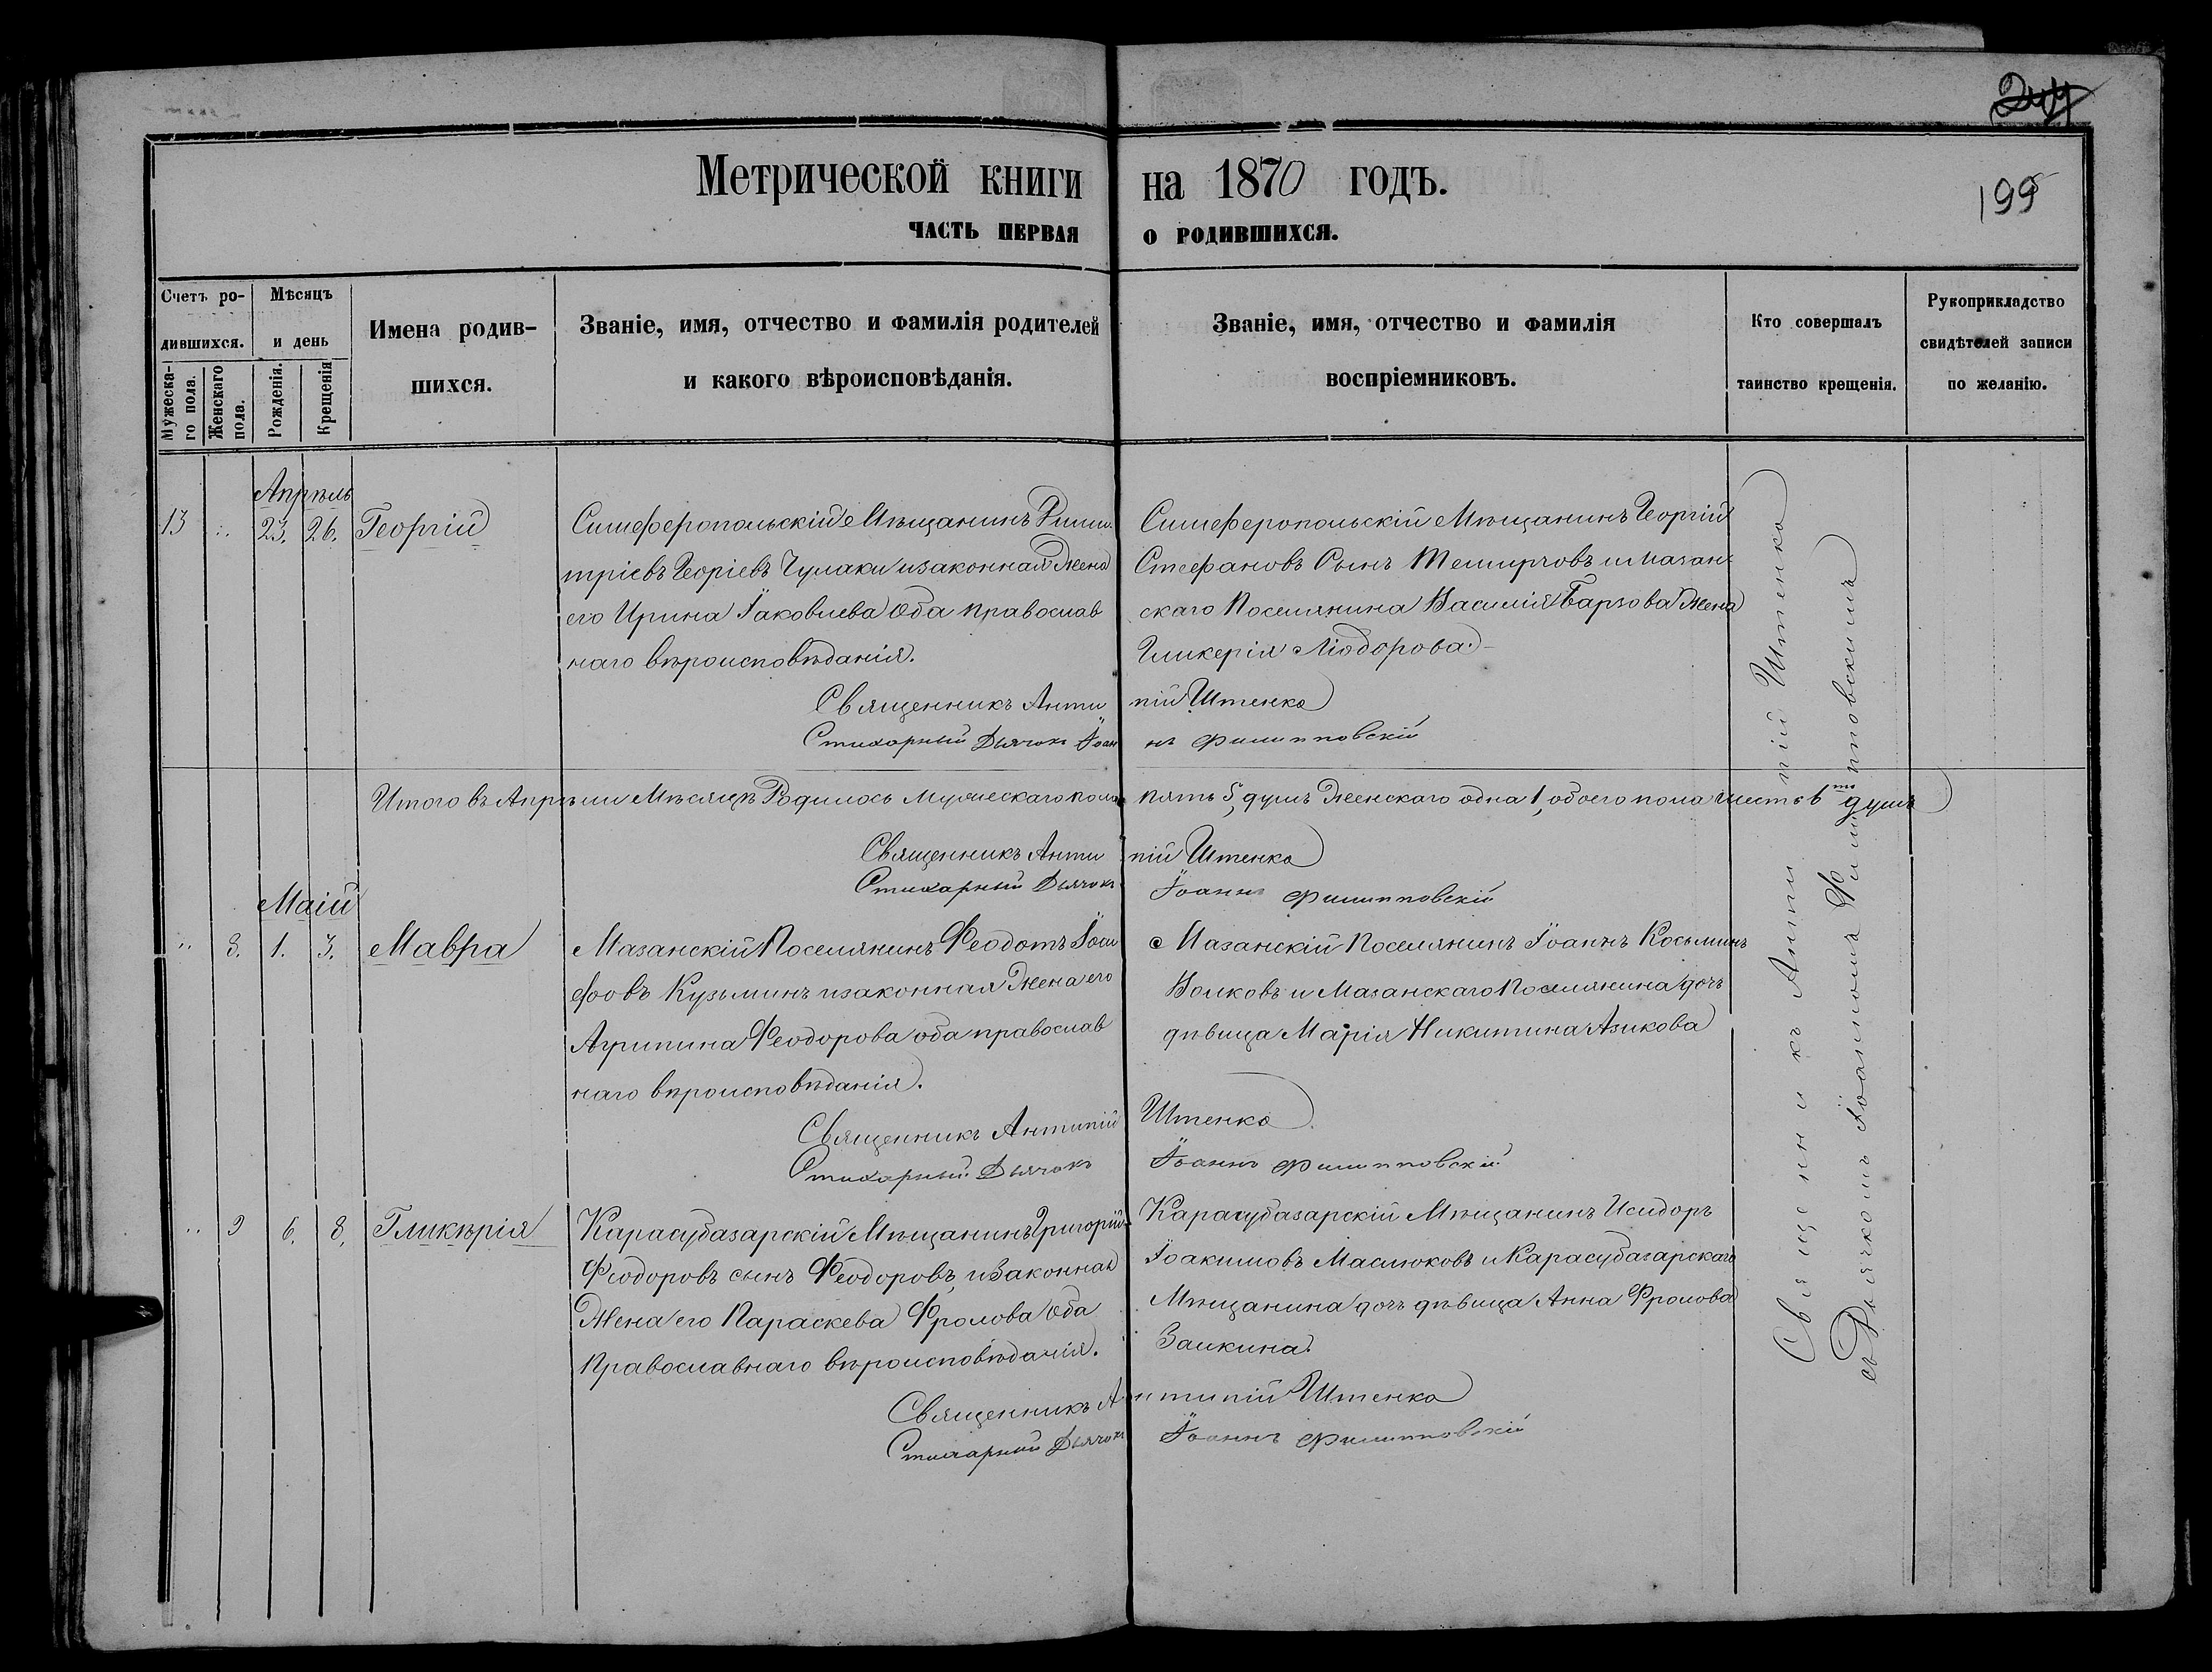 199
Метрической книги на 1870 годъ.
ЧАСТЬ ПЕРВАЯ О РОДИВШИХСЯ.
Счетъ родившихся.
Мужескаго пола.
Женскаго пола.
Мѣсяцъ и день
Рожденія.
Крещенія
Имена родившихся.
Званіе, имя, отчество и фамилія родителей
и какого вѣроисповѣданія.
Званіе, имя, отчество и фамилія
воспріемниковъ.
Кто совершалъ
таинство крещенія.
Рукоприкладство
свидѣтелей записи
по желанію.
Апрѣль
13 23. 26. Георгій
Симферопольскій Мѣщанинъ Дими
тріевъ Георіевъ Чулаки и законная Жена
его Ирина Іаковлева Оба православ
наго вѣроисповѣданія.
Симферопольскій Мѣщанинъ Георгій
Стефановъ Сынъ и Мазан
скаго Поселянина Василія Барзова Жена
Гликерія
Священникъ Антипій Штенко
Стихарный Дьячокъ Іоаннъ Филипповскій
Итого въ Апрѣли Мѣсяцѣ Родилось Мужескаго пола пять 5, душъ Женскаго одна 1, обоего пола шесть 6 душъ
Священникъ Антипій Штенко
Стихарный Дьячокъ Іоаннъ Филипповскій
Маій
8. 1. 3. Мавра
Мазанскій Поселянинъ Феодотъ Іоси
фовъ Кузьминъ и законная Жена его
Агрипина Феодорова оба православ
наго вѣроисповѣданія.
Мазанскій Поселянинъ Іоаннъ Косьминъ
Волковъ и Мазанскаго Поселянина дочь
дѣвица Марія Никитина Азикова
Священникъ Антипій Штенко
Стихарный Дьячокъ Іоаннъ Филипповскій
9 6. 8. Гликѣрія
Карасубазарскій Мѣщанинъ Григорій
Феодоровъ сынъ Феодоровъ, и Законная
Жена его Параскева Фролова Оба
Православнаго вѣроисповѣданія.
Карасубазарскій Мѣщанинъ Исидоръ
Іоакимовъ Маслюковъ и Карасубазарскаго
Мѣщанина дочь дѣвица Анна Фролова
Заикина.
Священникъ Антипій Штенко
Стихарный Дьячокъ Іоаннъ Филипповскій
Священникъ Антипій Штенко
съ Дьячкомъ Іоанномъ Филипповскимъ